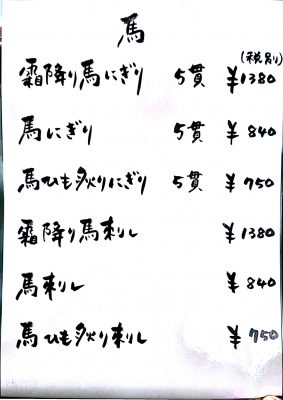 馬
(税別)
霜降り馬にぎり 5貫 ¥1380
馬にぎり 5貫 ¥840
馬ひも炙りにぎり 5貫 ¥750
霜降り馬刺し ¥1380
馬刺し ¥840
馬ひも炙り刺し ¥750